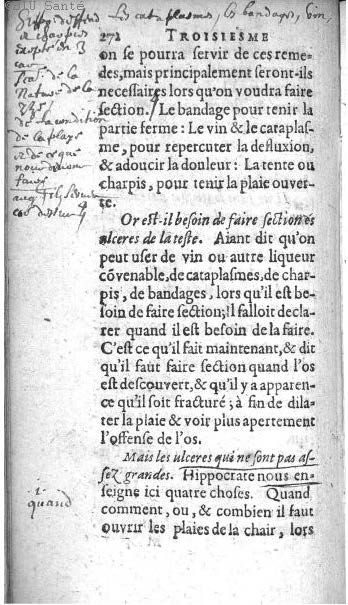 BIU Santé
Les cataplasmes, les bandages, vin,
272 TROISIESME
on se pourra servir de ces reme-
des, mais principalement seront-ils
necessaires lors qu'on voudra faire
section. Le bandage pour tenir la
partie ferme: Le vin & le cataplas-
me, pour repercuter la defluxion,
& adoucir la douleur: La tente ou
charpis, pour tenir la plaie ouver-
te.
Or est-il besoin de faire section es
ulceres de la teste. Aiant dit qu'on
peut user de vin ou autre liqueur
cõvenable, de cataplasmes, de char-
pis, de bandages, lors qu'il est be-
soin de faire section; Il falloit decla-
rer quand il est besoin de la faire.
C'est ce qu'il fait maintenant, & dit
qu'il faut faire section quand l'os
est descouvert, & qu'il y a apparen-
ce qu'il soit fracturé; à fin de dila-
ter la plaie & voir plus apertement
l'offense de l'os.
Mais les ulceres qui ne sont pas as-
sez grandes. Hippocrate nous en-
seigne ici quatre choses. Quand
comment, ou, & combien il faut
ouvrir les plaies de la chair, lors
de la
Nature de la
de la condition
de la playe
1.
quand